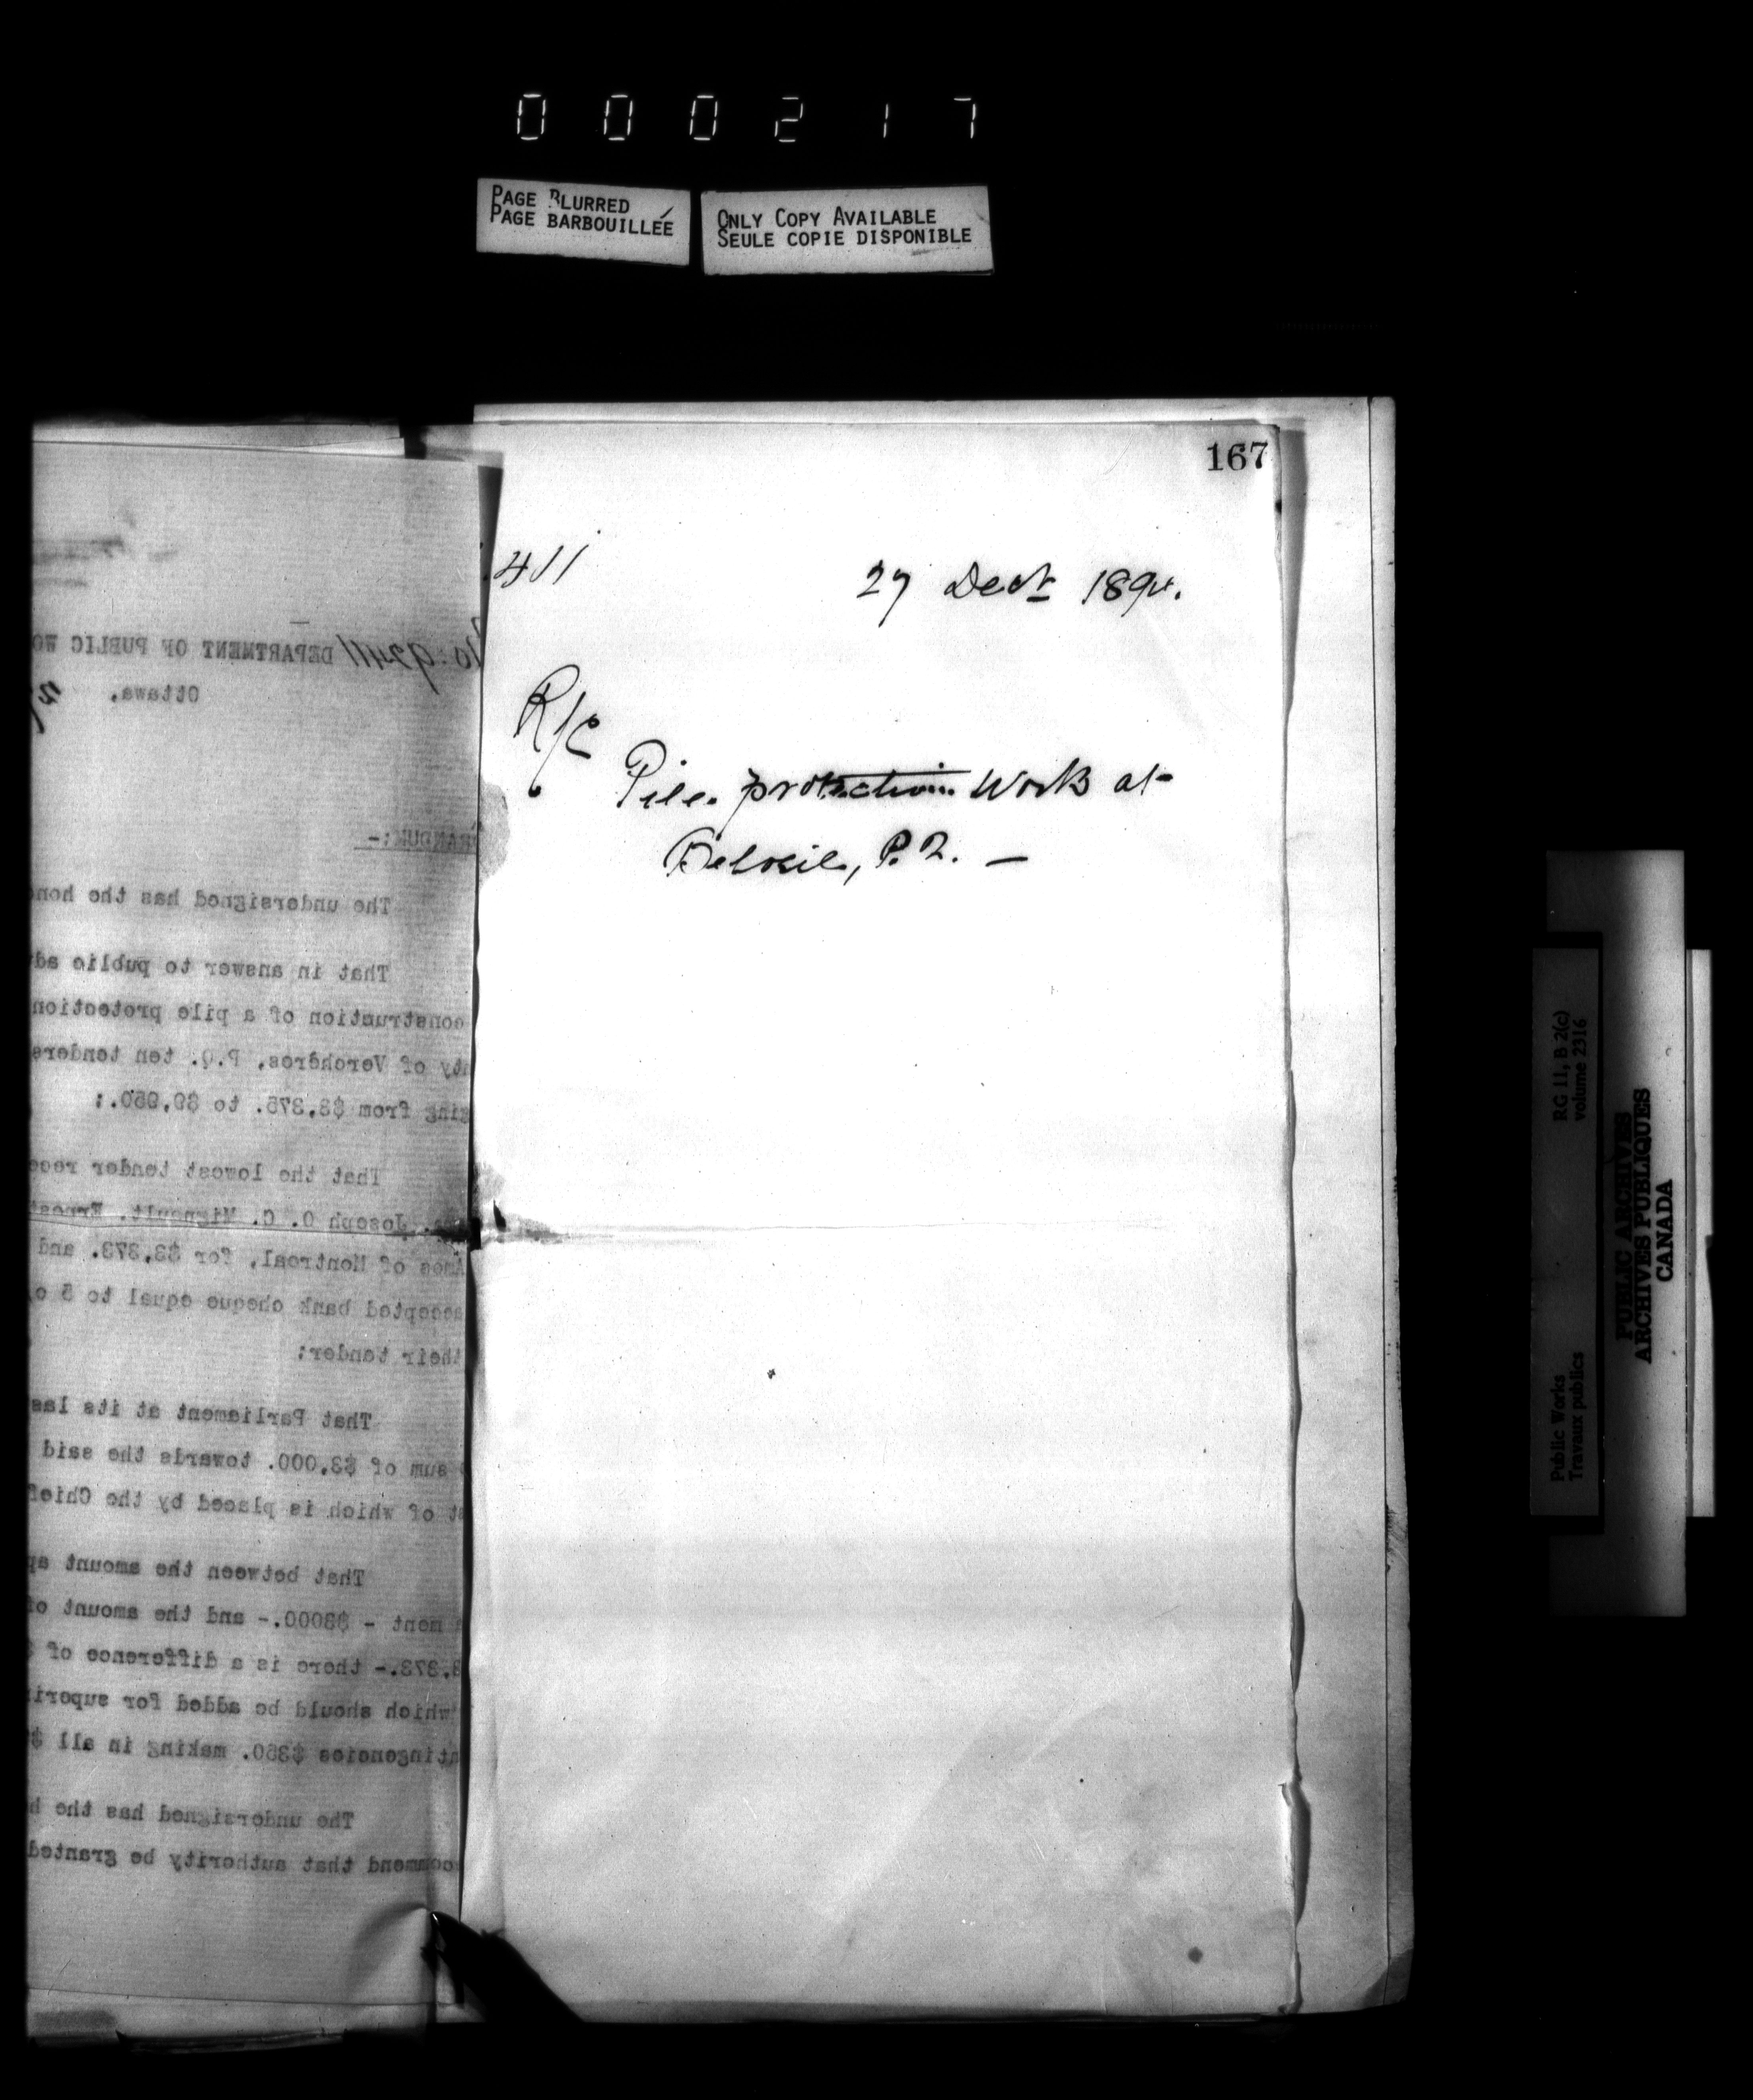 000217
PAGE BLURRED
PAGE BARBOUILLÉE
ONLY COPY AVAILABLE
SEULE COPIE DISPONIBLE
167
411 27 Decr 1894.
R/C
Pile protection Work at
Beloeil, P.Q. —
DEPARTMENT OF PUBLIC WO
Ottawa,
RANDUM:-
The undersigned has the hono
That in answer to public ad
construction of a pile protection
ty of Verchères, P.Q. ten tenders
ging from $3,375. to $9,950.:
That the lowest tender rece
Joseph O. C. Mignault, Ernest
Amos of Montreal, for $3,373. and
accepted bank cheque equal to 5 o
their tender:
That Parliament at its las
sum of $3,000. towards the said
t of which is placed by the Chief
That between the amount ap
ment - $3000.- and the amount of
3,373.- there is a difference of $
which should be added for superi
ntingencies $350. making in all $
The undersigned has the h
commend that authority be granted
RG 11, B 2(c)
volume 2316
Public Works
Travaux publics
PUBLIC ARCHIVES
ARCHIVES PUBLIQUES
CANADA